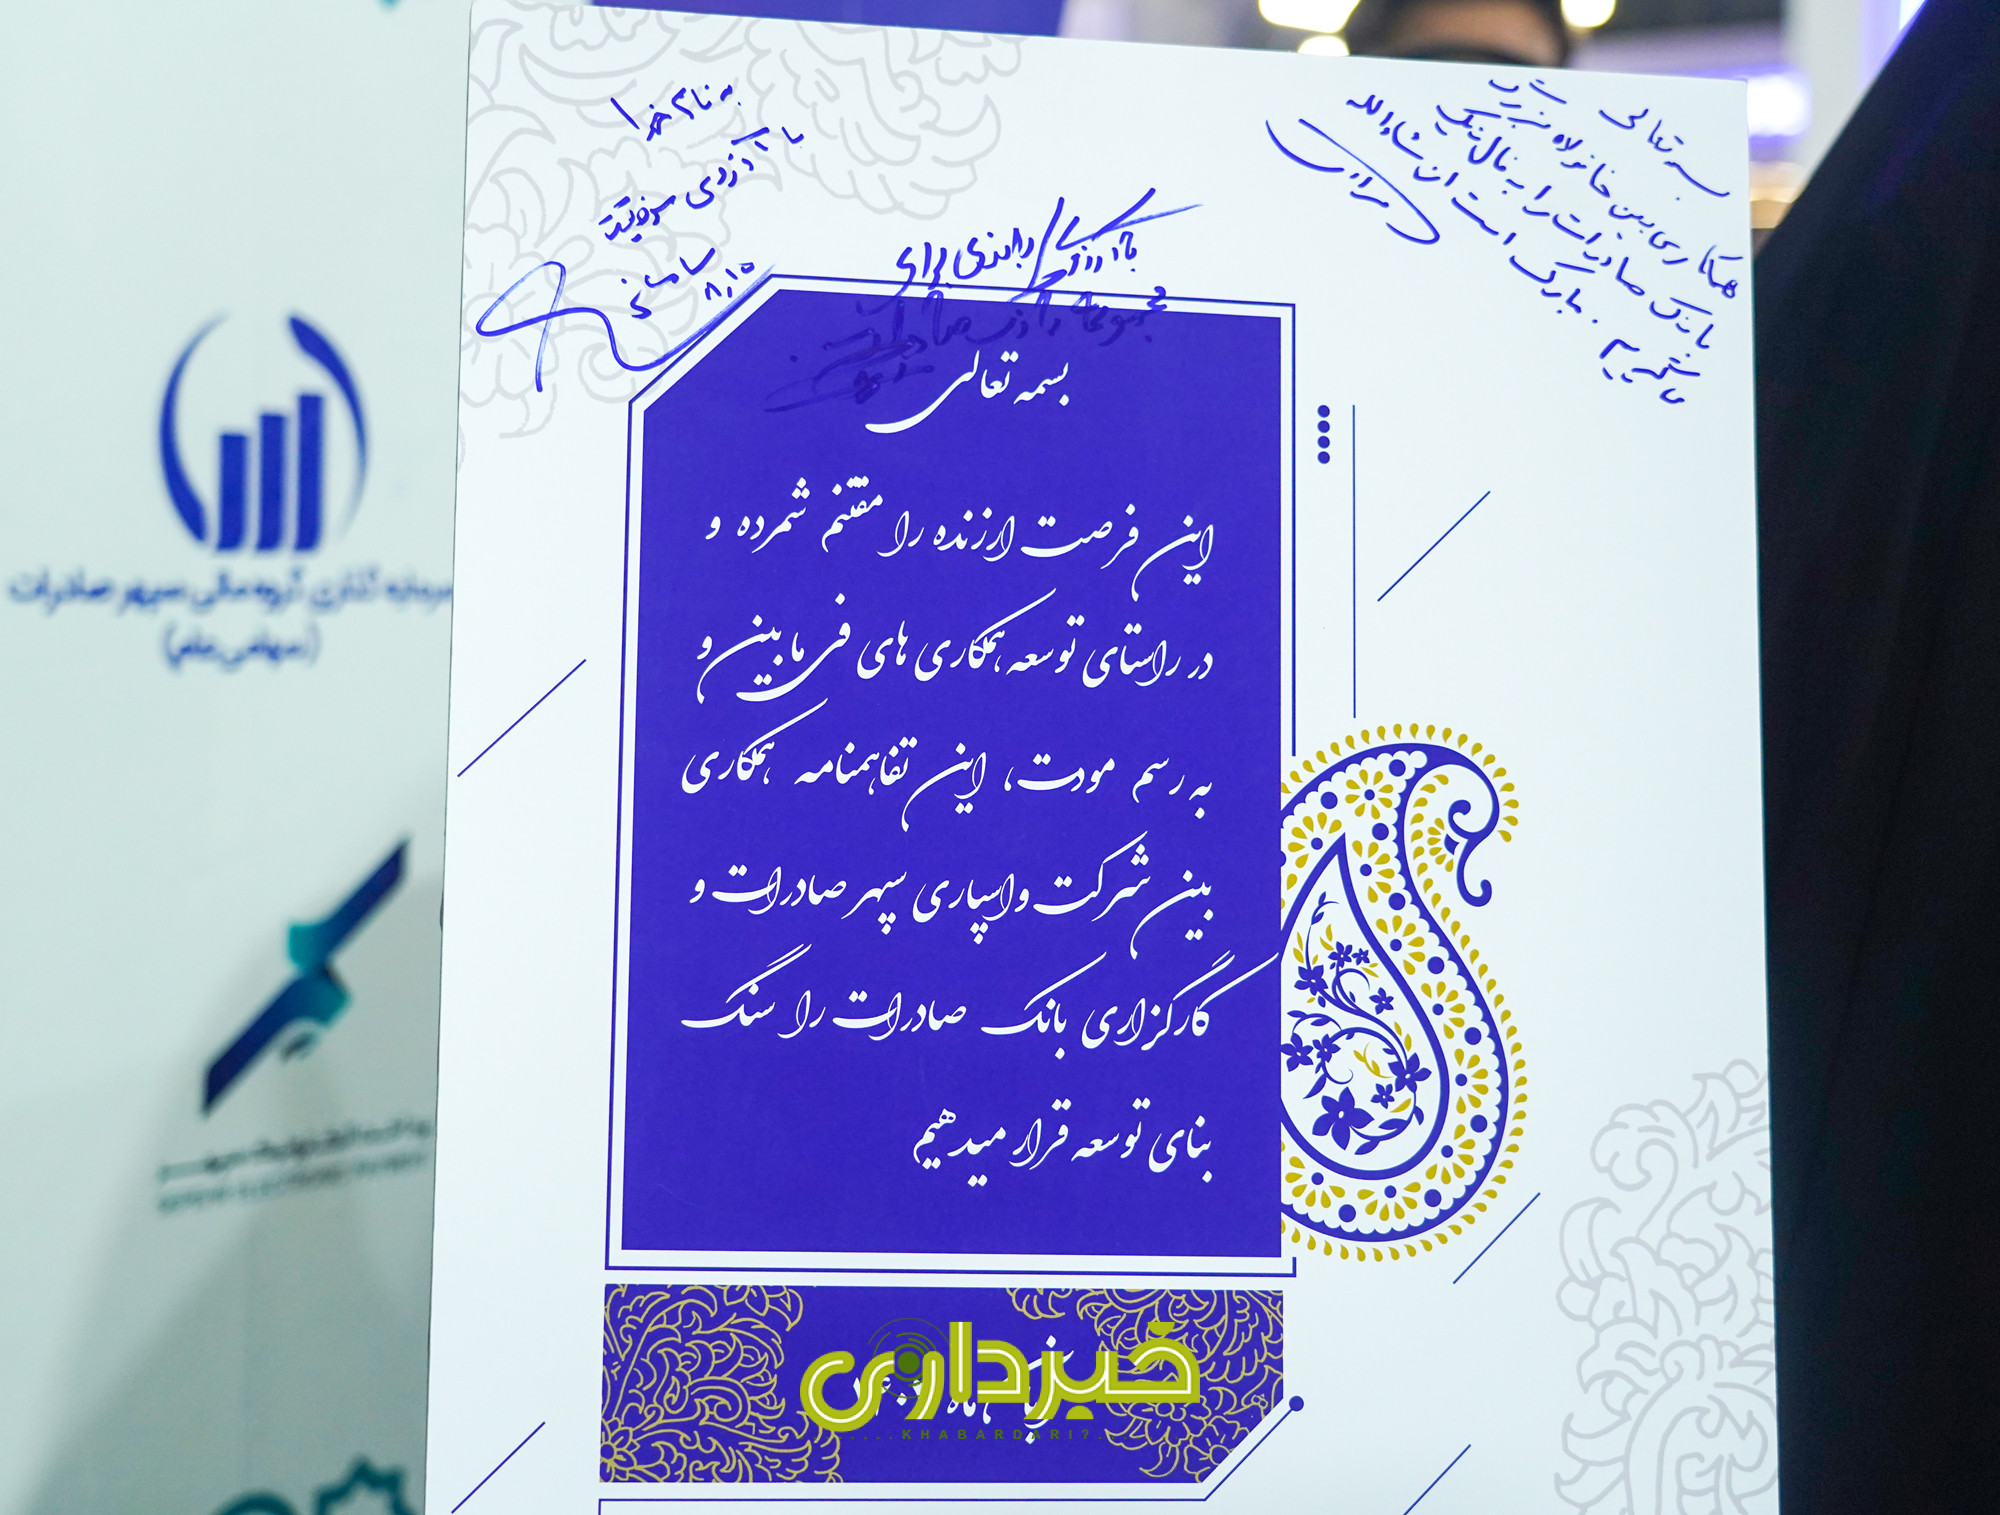 بسمه تعالی
همکاری بین خانواده بزرگ
بانک صادرات را به فال نیک
می‌گیریم. مبارک است ان شاءالله
به نام خدا
با آرزوی موفقیت
با آرزوی برای
بسمه تعالی
این فرصت ارزنده را مقتنم شمرده و
در راستای توسعه همکاری های فی ما بین و
به رسم مودت، این تفاهمنامه همکاری
بین شرکت واسپاری سپهر صادرات و
کارگزاری بانک صادرات را سنگ
بنای توسعه قرار میدهیم
سرمایه گذاری گروه مالی سپهر صادرات
(سهامی عام)
خبرداری
KHABARDARI?